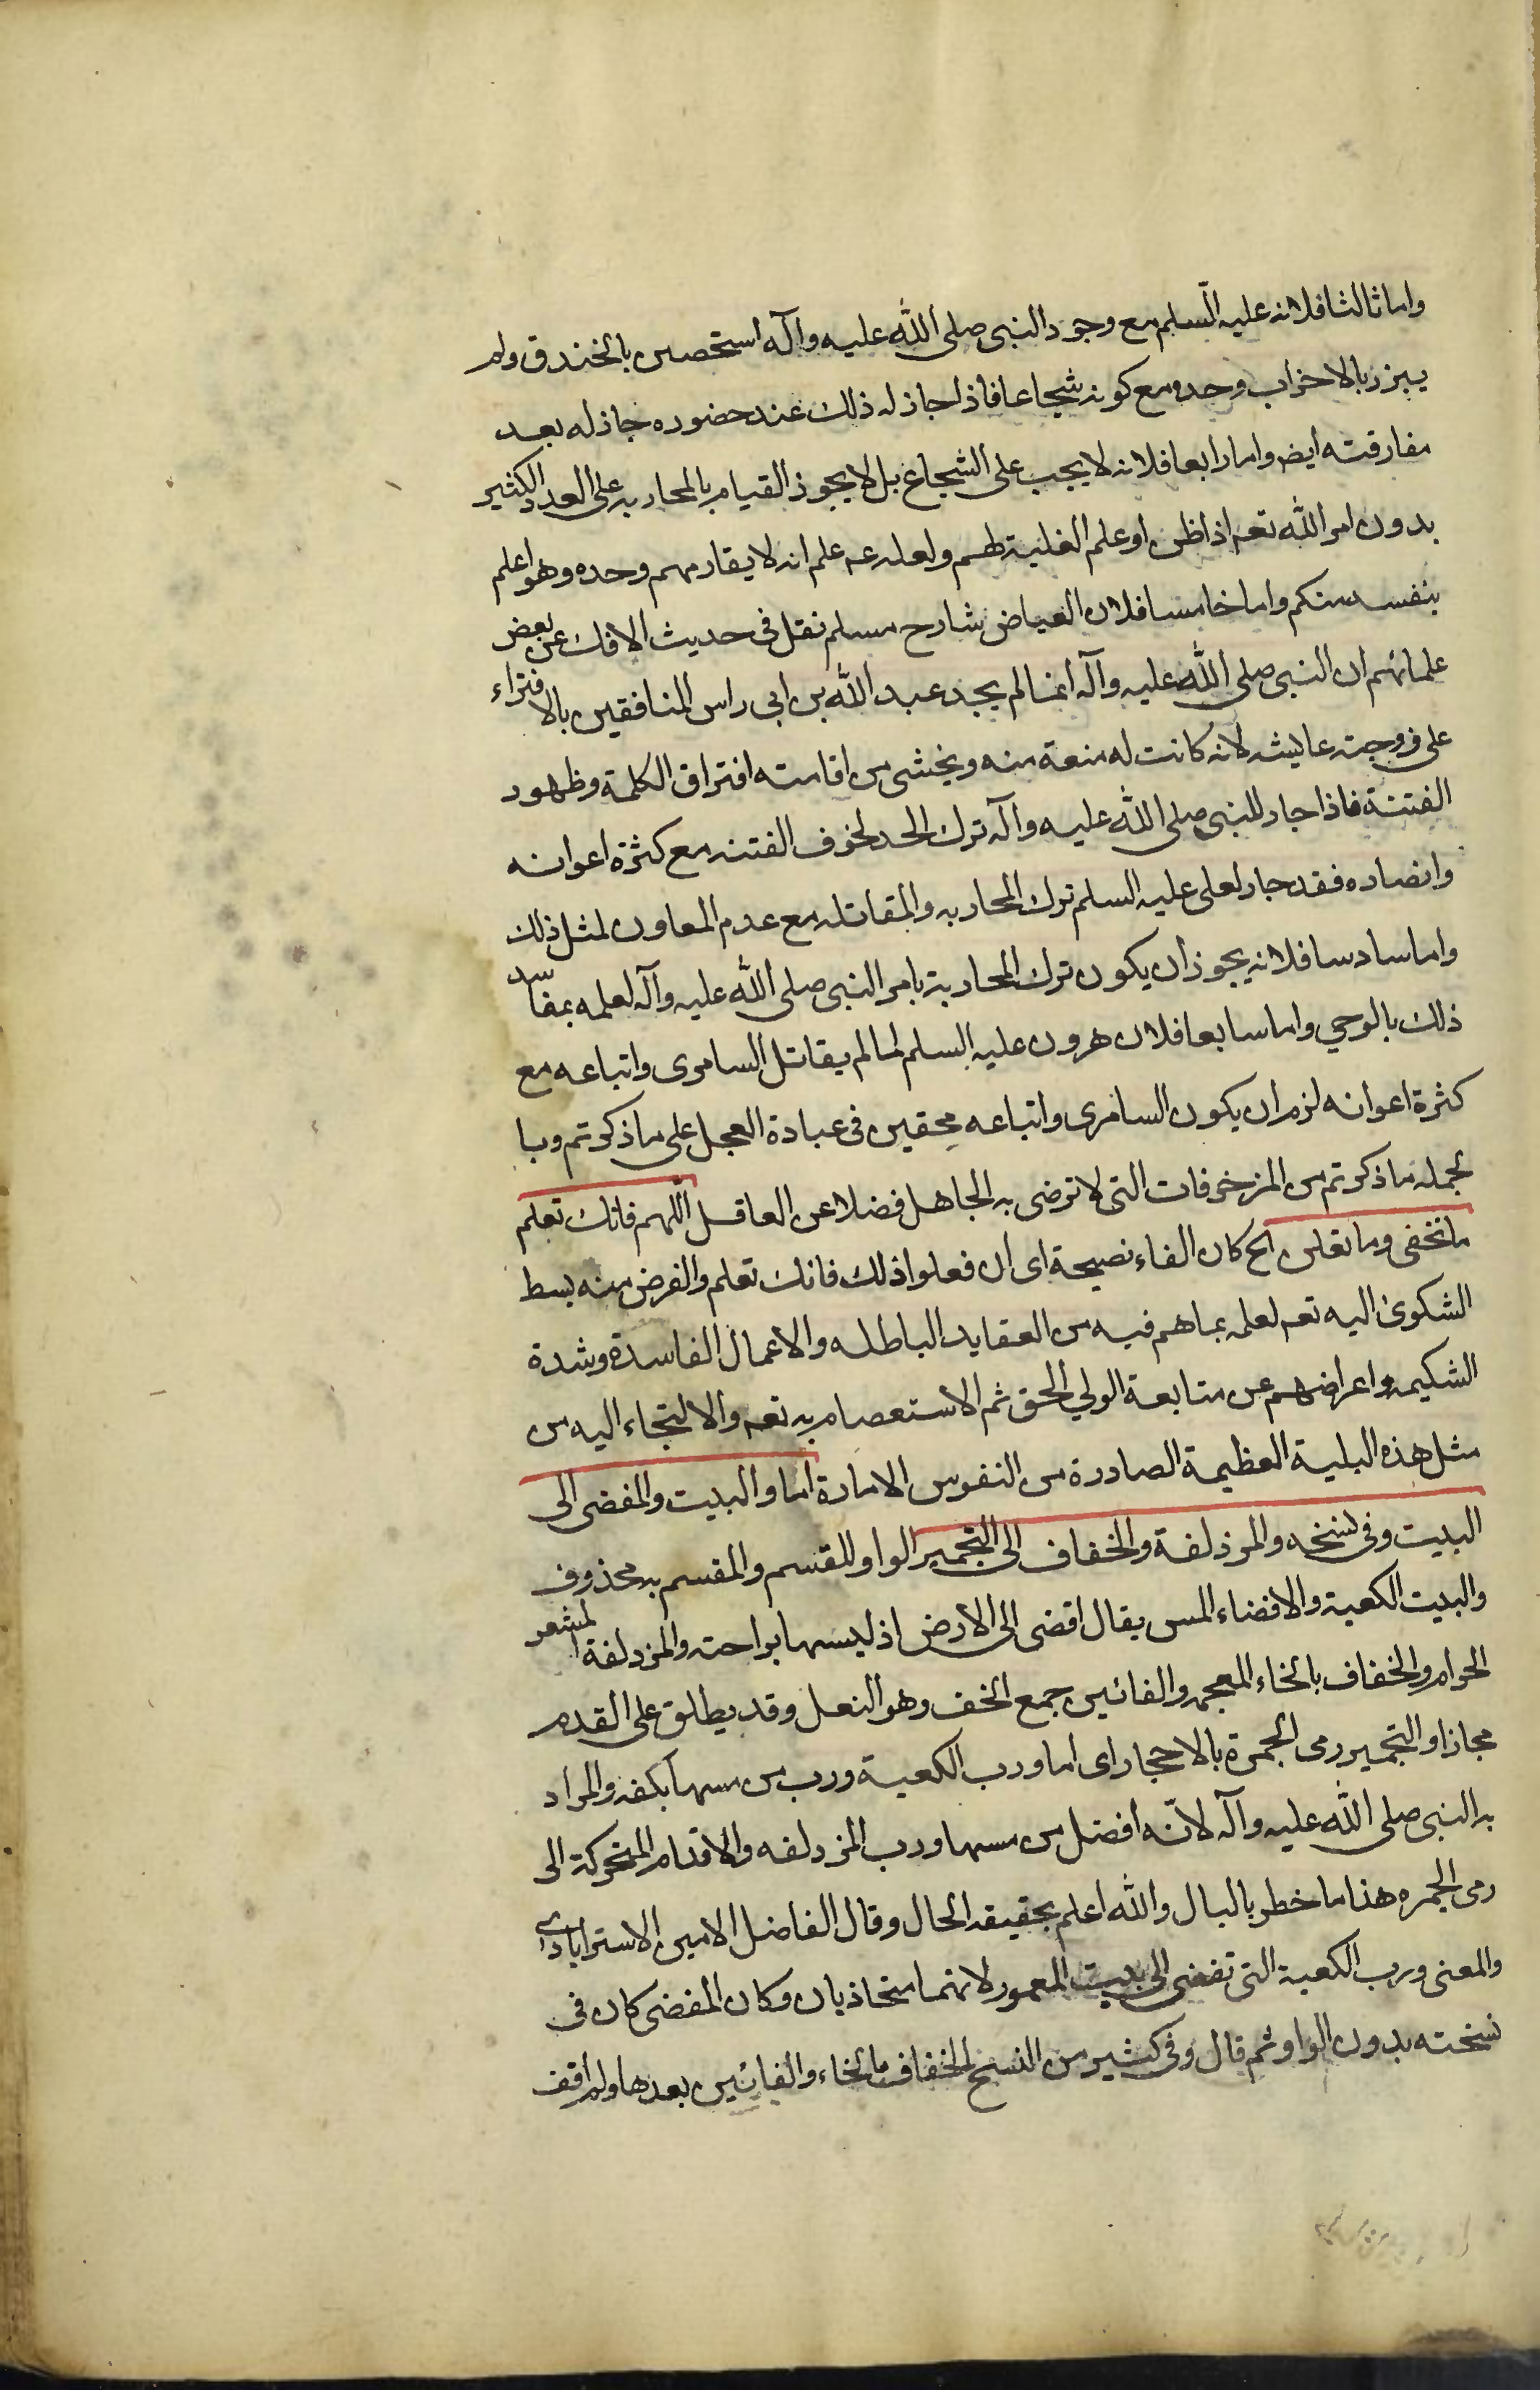 واما ثالثا فلانه عليه السلم مع وجود النبى صلى الله عليه وآله استحصن بالخندق ولم
يبرز بالاحزاب وحده مع كونه شجاعا فاذا جاز له ذلك عند حضوره جاز له بعد
مفارقته ايض واما رابعا فلانه لا يجب على الشجاع بل لا يجوز القيام بالمحاربه على العدد الكثير
بدون امر الله تعه اذا ظن او علم الغلبة لهم ولعله عه علم انه لا يقاومهم وحده وهو اعلم
بنفسه منكم واما خامسا فلان العياض شارح مسلم نقل فى حديث الافك عن بعض
علمائهم ان النبى صلى الله عليه وآله انما لم يحد عبد الله بن ابى راس المنافقين بالافتراء
على زوجته عايشه لانه كانت له منعة منه ويخشى من اقامته افتراق الكلمة وظهور
الفتنة فاذا جاز للنبى صلى الله عليه وآله ترك الحد لخوف الفتنه مع كثرة اعوانه
وانصاره فقد جاز لعلى عليه السلم ترك المحاربه والمقاتله مع عدم المعاون لمثل ذلك
واما سادسا فلانه يجوز ان يكون ترك المحاربة بامر النبى صلى الله عليه وآله لعلمه بمفاسد
ذلك بالوحي واما سابعا فلان هرون عليه السلم لما لم يقاتل السامرى واتباعه مع
كثرة اعوانه لزم ان يكون السامرى واتباعه محقين فى عبادة العجل على ما ذكرتم وبا
لجمله ما ذكرتم من المزخرفات التى لا ترضى به الجاهل فضلا عن العاقل اللهم فانك تعلم
ما نخفى وما نعلن الخ كان الفاء نصيحة اى ان فعلوا ذلك فانك تعلم والغرض منه بسط
الشكوى اليه تعه لعلمه بما هم فيه من العقايد الباطله والاعمال الفاسدة وشدة
الشكيمه واعراضهم عن متابعة الولي الحق ثم الاستعصام به تعه والالتجاء اليه من
مثل هذه البلية العظيمة الصادرة من النفوس الامارة اما والبيت والمفضى الى
البيت وفى نسخه والمزدلفة والخفاف الى التجمير الواو للقسم والمقسم به محذوف
والبيت الكعبة والافضاء المس يقال افضى الى الارض اذ ليسها براحته والمزدلفة المشعر
الحرام والخفاف بالخاء المعجمه والفائين جمع الخف وهو النعل وقد يطلق على القدم
مجازا والتجمير رمى الجمرة بالاحجار اى اما ورب الكعبة ورب من مسها بكفه والمراد
به النبى صلى الله عليه وآله لانّه افضل من مسها ورب المزدلفه والاقدام المتحركة الى
رمى الجمره هذا ما خطر بالبال والله اعلم بحقيقه الحال وقال الفاضل الامين الاسترابادى
والمعنى ورب الكعبة التى تفضى الى بيت المعمور لانهما متحاذيان وكان المفضى كان فى
نسخته بدون الواو ثم قال وفى كثير من النسخ الخفاف بالخاء والفائين بعدها ولم اقف